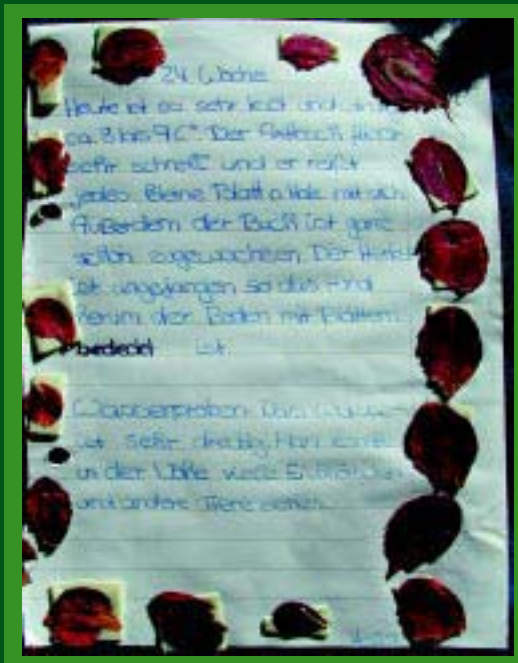 24. Woche
Heute ist es sehr kalt und
ca. 8 bis 9 C°. Der
sehr schnell und er reißt
jedes kleine Blatt o. Holz mit sich.
Außerdem der Bach ist ganz
schön zugewachsen. Der Herbst
ist angefangen so das rund
herum der Boden mit Blättern
bedeckt ist.
Wasserproben: Das Wasser
ist sehr dreckig. Man kann
in der Nähe viele
und andere Tiere sehen.